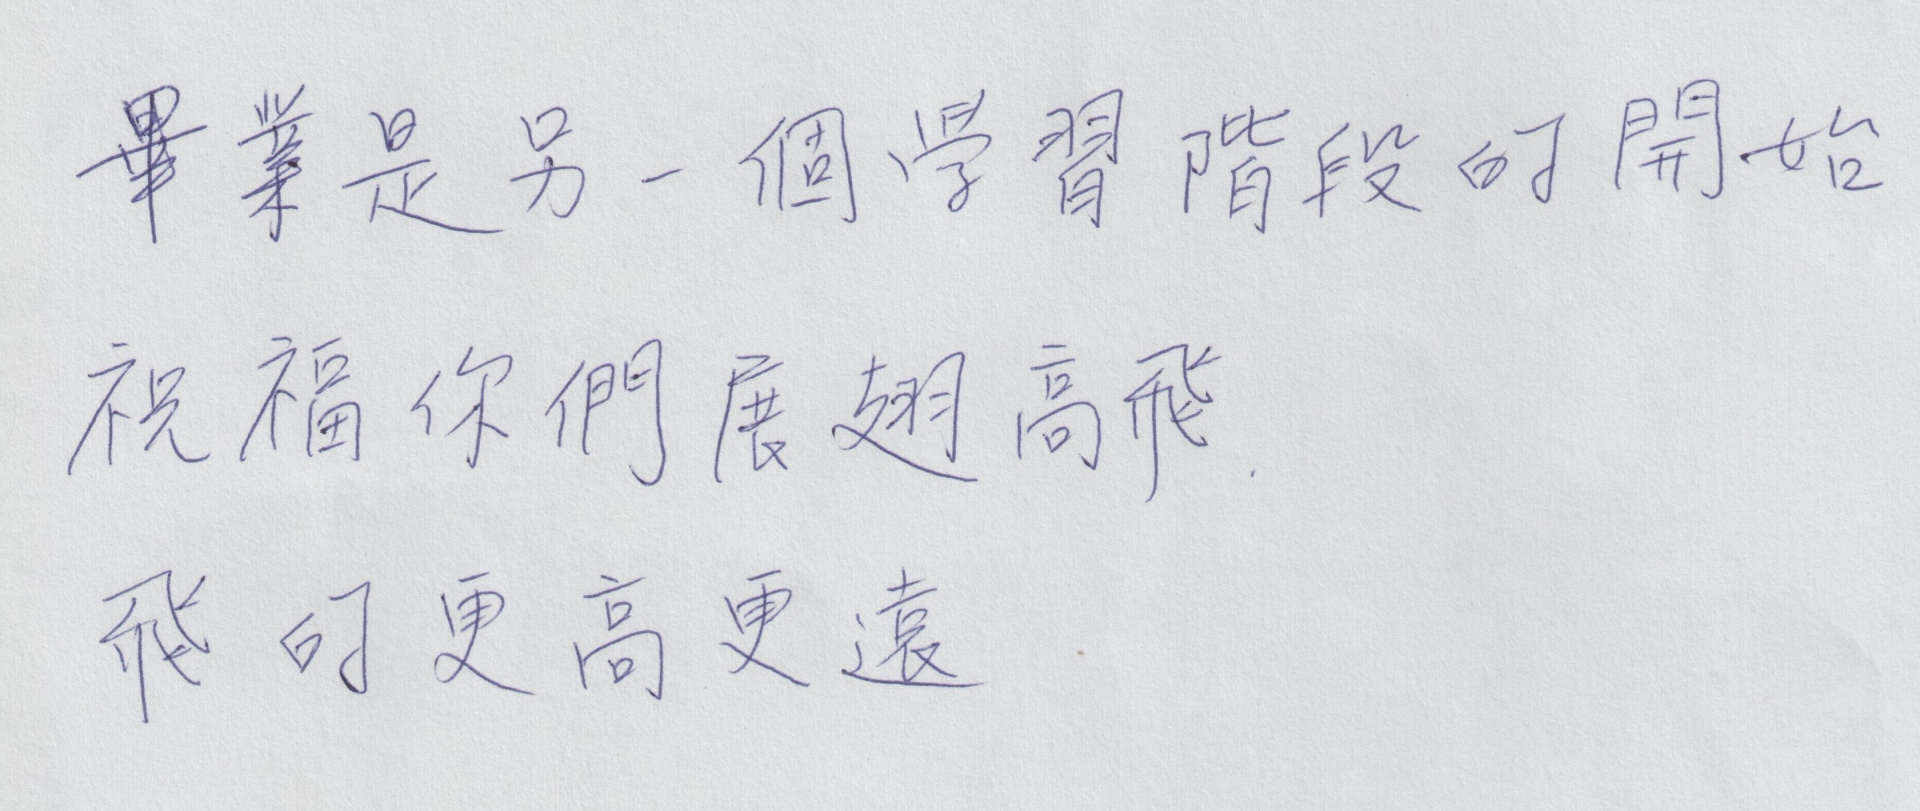 畢業是另一個学習階段的開始
祝福你們展翅高飛.
飛的更高更遠